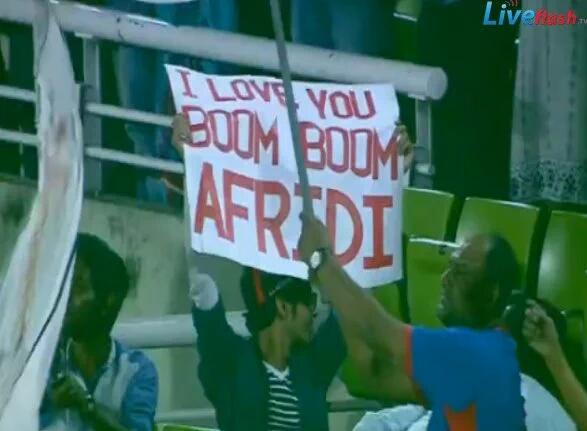 Liveflash.TV
I LOVE YOU
BOOM BOOM
AFRIDI